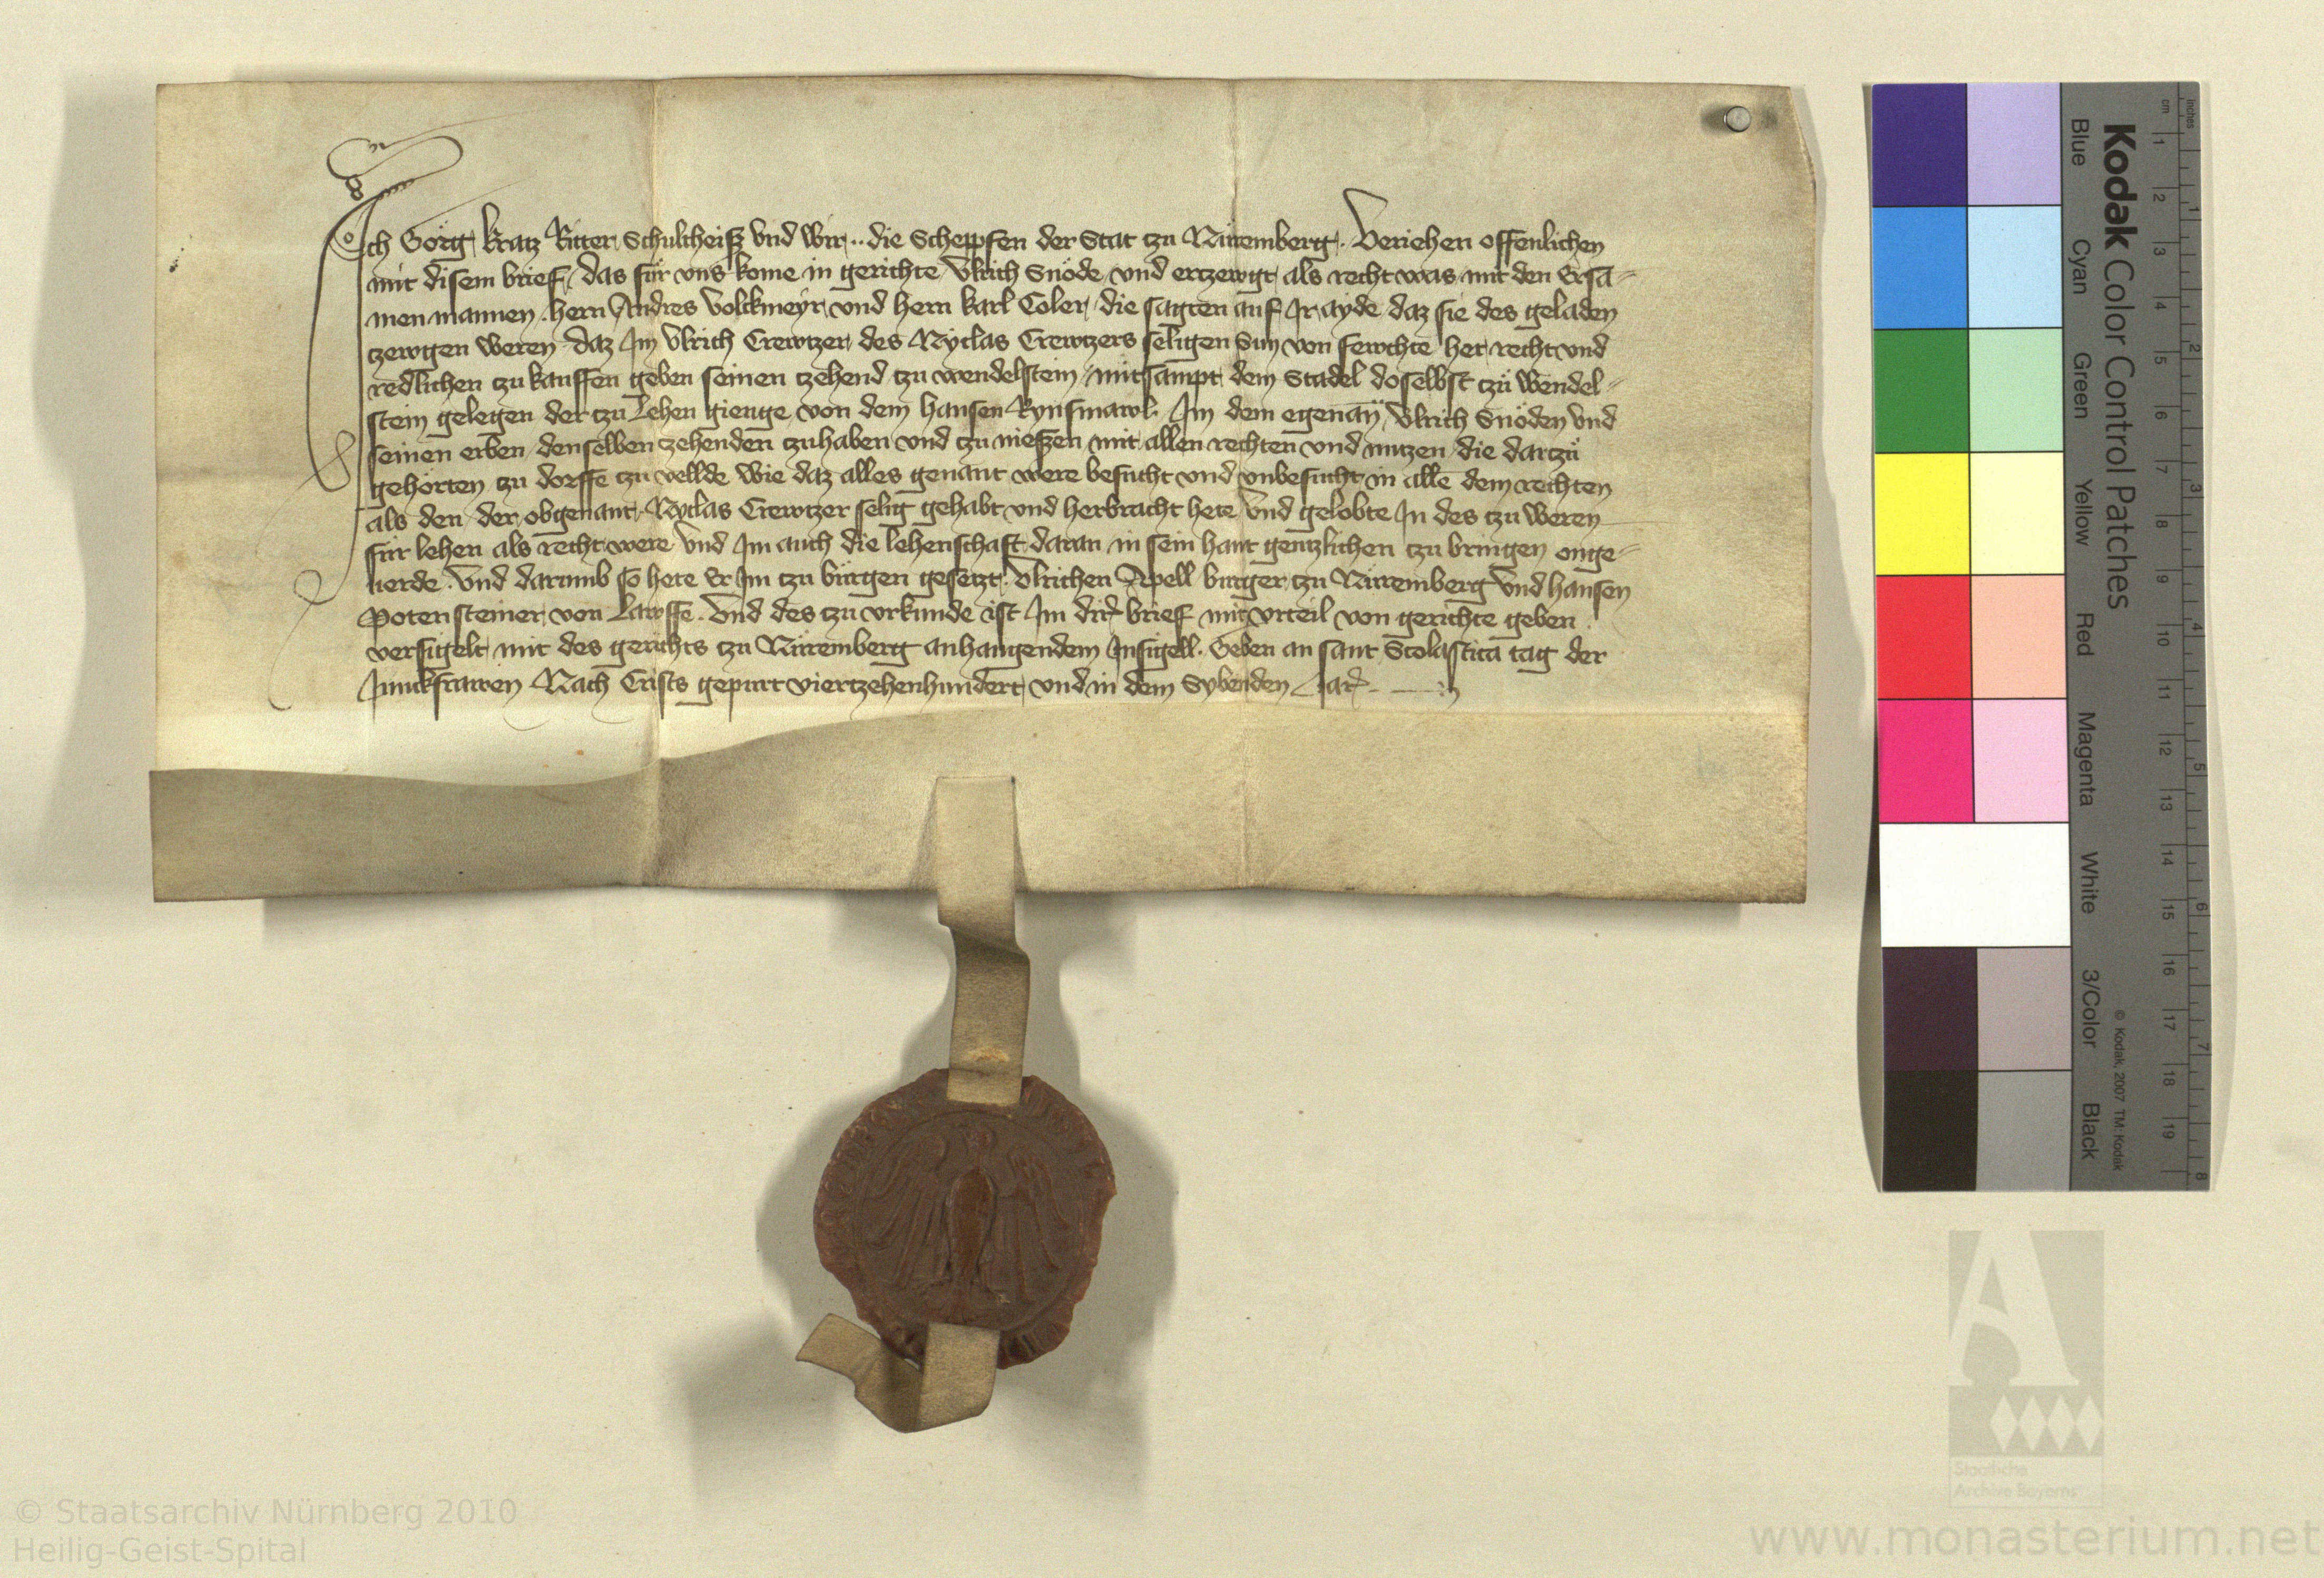 Ich Görg Kratz Ritter Schultheisz vnd wir ·· die Scheppfen der Stat tzu Nüremberg · Veriehen offenlichen
mit disem brief das für vns kome in gerichte Vlrich Snöde vnd ertzewgt als recht was mit den Ersā-
men mannen hern Andres Volckmeyr vnd hern Karl Coler die sagten auf Jr ayde daz sie des geladen
tzewgen weren daz Jm Vlrich Crewtzer des Nyclas Crewtzers seligen Sun von fewchte het recht vnd
redlichen tzu kauffen geben seinen tzehend tzu wendelstein mitsampt dem Stadel doselbst tzü wendel-
stein gelegen der tzu Lehen gienge von dem hansen Rynsmawl · Jm dem egenañ Vlrich Snöden vnd
seinen erben denselben tzehenden tzuhaben vnd tzu nieszen mit allen rechten vnd nutzen die dartzü
gehörten tzu dorffe tzu vellde wie daz alles genant were besucht vnd vnbesucht in alle dem rechten
als den der obgenant Nyclas Crewtzer selig gehabt vnd herbracht hete Vnd gelobte Jn des tzu weren
für lehen als recht were Vnd Jm auch die lehenschaft daran in sein hant gentzlichen tzu bringen onge-
uerde · Vnd darumb so hete Er Jm tzu bürgen gesetzt · Vlrichen Apell burger tzu Nüremberg Vnd hansen
Potensteiner von Lawffe · Vnd des tzu vrkunde ist Jm dirr brief mit vrteil von gerichte geben
versigelt mit des gerichts tzu Nüremberg anhangendem Jnsigell · Geben an sant Scolastica tag der
Junckfrawen Nach Crists gepurt viertzehenhundert vnd in dem Sybenden Jare
Kodak Color Control Patches
Blue Cyan Green Yellow Red Magenta White 3/Color Black
© Kodak, 2007 TM: Kodak
inches 1 2 3 4 5 6 7 8
cm 1 2 3 4 5 6 7 8 9 10 11 12 13 14 15 16 17 18 19
A
Staatliche
Archive Bayerns
© Staatsarchiv Nürnberg 2010
Heilig-Geist-Spital
www.monasterium.net